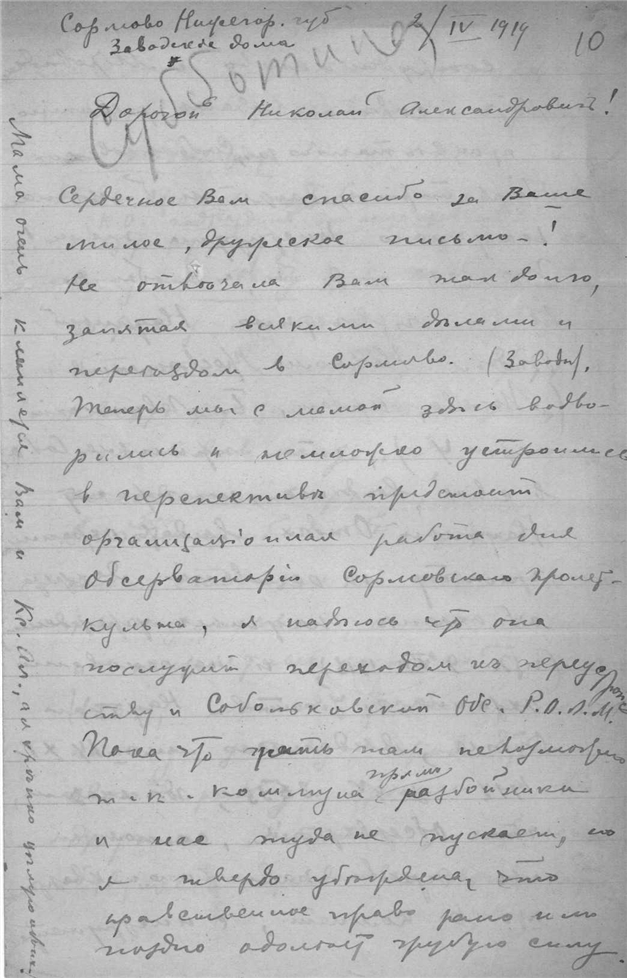 Сормово Нижегор. губ
Заводские дома
2/IV 1919
10
Дорогой Николай Александровичъ!
Сердечное Вам спасибо за Ваше
милое, дружеское письмо-!
Не отвѣчала Вам так долго,
занятая всякими дѣлами и
переѣздом в Сормово. (Заводы).
Теперь мы с мамой здѣсь водво-
рились и немножко устроились
в перспективѣ предстоит
организацiонная работа для
Обсерваторiи Сормовскаго Пролет-
культа, я надѣюсь что она
послужит переходом къ переу
ству и Собольковской Обс. Р.О.Л.М.
Пока что жить там невозможно
т.к. коммуна прямо разбойники
и нас туда не пускает, но
я твердо убѣждена, что
нравственное право рано или
поздно одолѣет грубую силу.
Мама очень кланяется Вам и Кс. Ал., а я крѣпко цѣлую обоих!